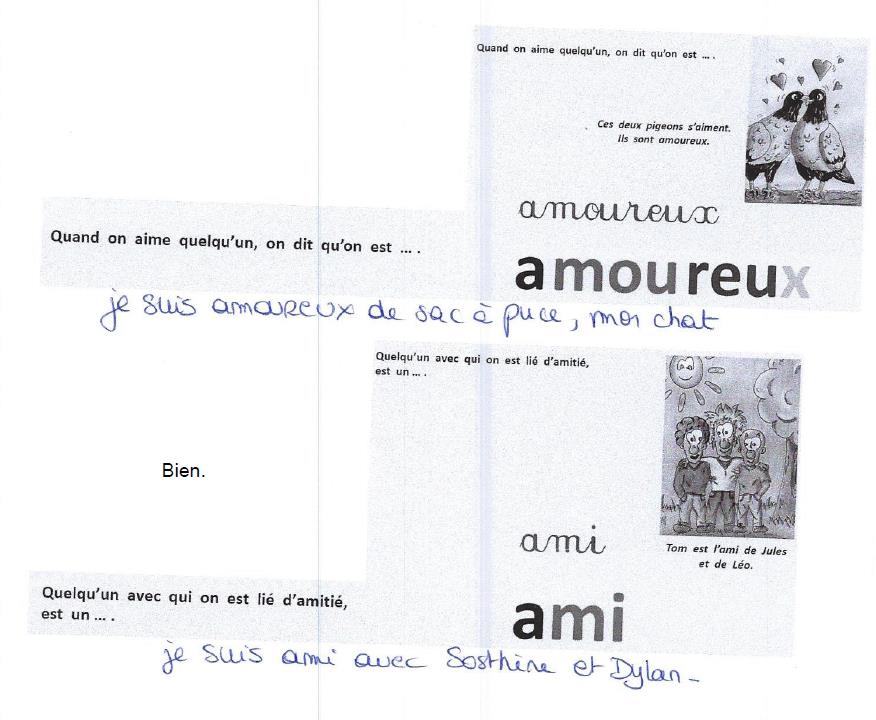 Quand on aime quelqu'un, on dit qu'on est ... .
Ces deux pigeons s'aiment.
Ils sont amoureux.
amoureux
Quand on aime quelqu'un, on dit qu'on est ... .
amoureux
je suis amoureux de sac à puce, mon chat
Quelqu'un avec qui on est lié d'amitié,
est un ... .
Bien.
ami
Tom est l'ami de Jules
et de Léo.
Quelqu'un avec qui on est lié d'amitié,
est un ... .
ami
je suis ami avec Sosthine et Dylan -